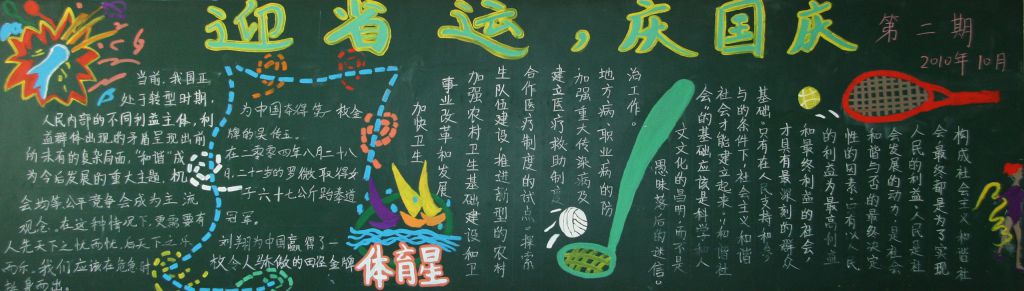 迎省运，庆国庆
第二期
2010年10月
当前，我国正
处于转型时期，
人民内部的不同利益主体，利
益群体出现的矛盾呈现出前
所未有的复杂局面，“和谐”成
为今后发展的重大主题，机
会均等公平竞争会成为主流
观念，在这种情况下，更需要有
人先天下之忧而忧，后天下之乐
而乐，我们应该在危急时
挺身而出。
为中国夺得第一枚金
牌的是
在二零零四年八月二十八
日，二十一岁的罗微取得女
子六十七公斤跆拳道
冠军。
刘翔为中国赢得了一
枚令人骄傲的田径金牌
体育星
加快卫生
事业改革和发展
加强农村卫生基础建设和卫
生队伍建设，推进新型的农村
合作医疗制度的试点，探索
建立医疗救助制度
加强重大传染病及
地方病，职业病的防
治工作。
思昧落后的迷信。
文文化的昌明，而不是
会”的基础应该是科学、人
社会才能建立起来，“和谐社
与的条件下，社会主义和谐
基础，只有在人民支持和参
才具有最深刻的群众
和最终利益的社会，
的利益为最高利益
性的因素，只有以人民
和谐与否的最终决定
会发展的动力，是社会
人民的利益，人民是社
会最终都是为了实现
构成社会主义和谐社